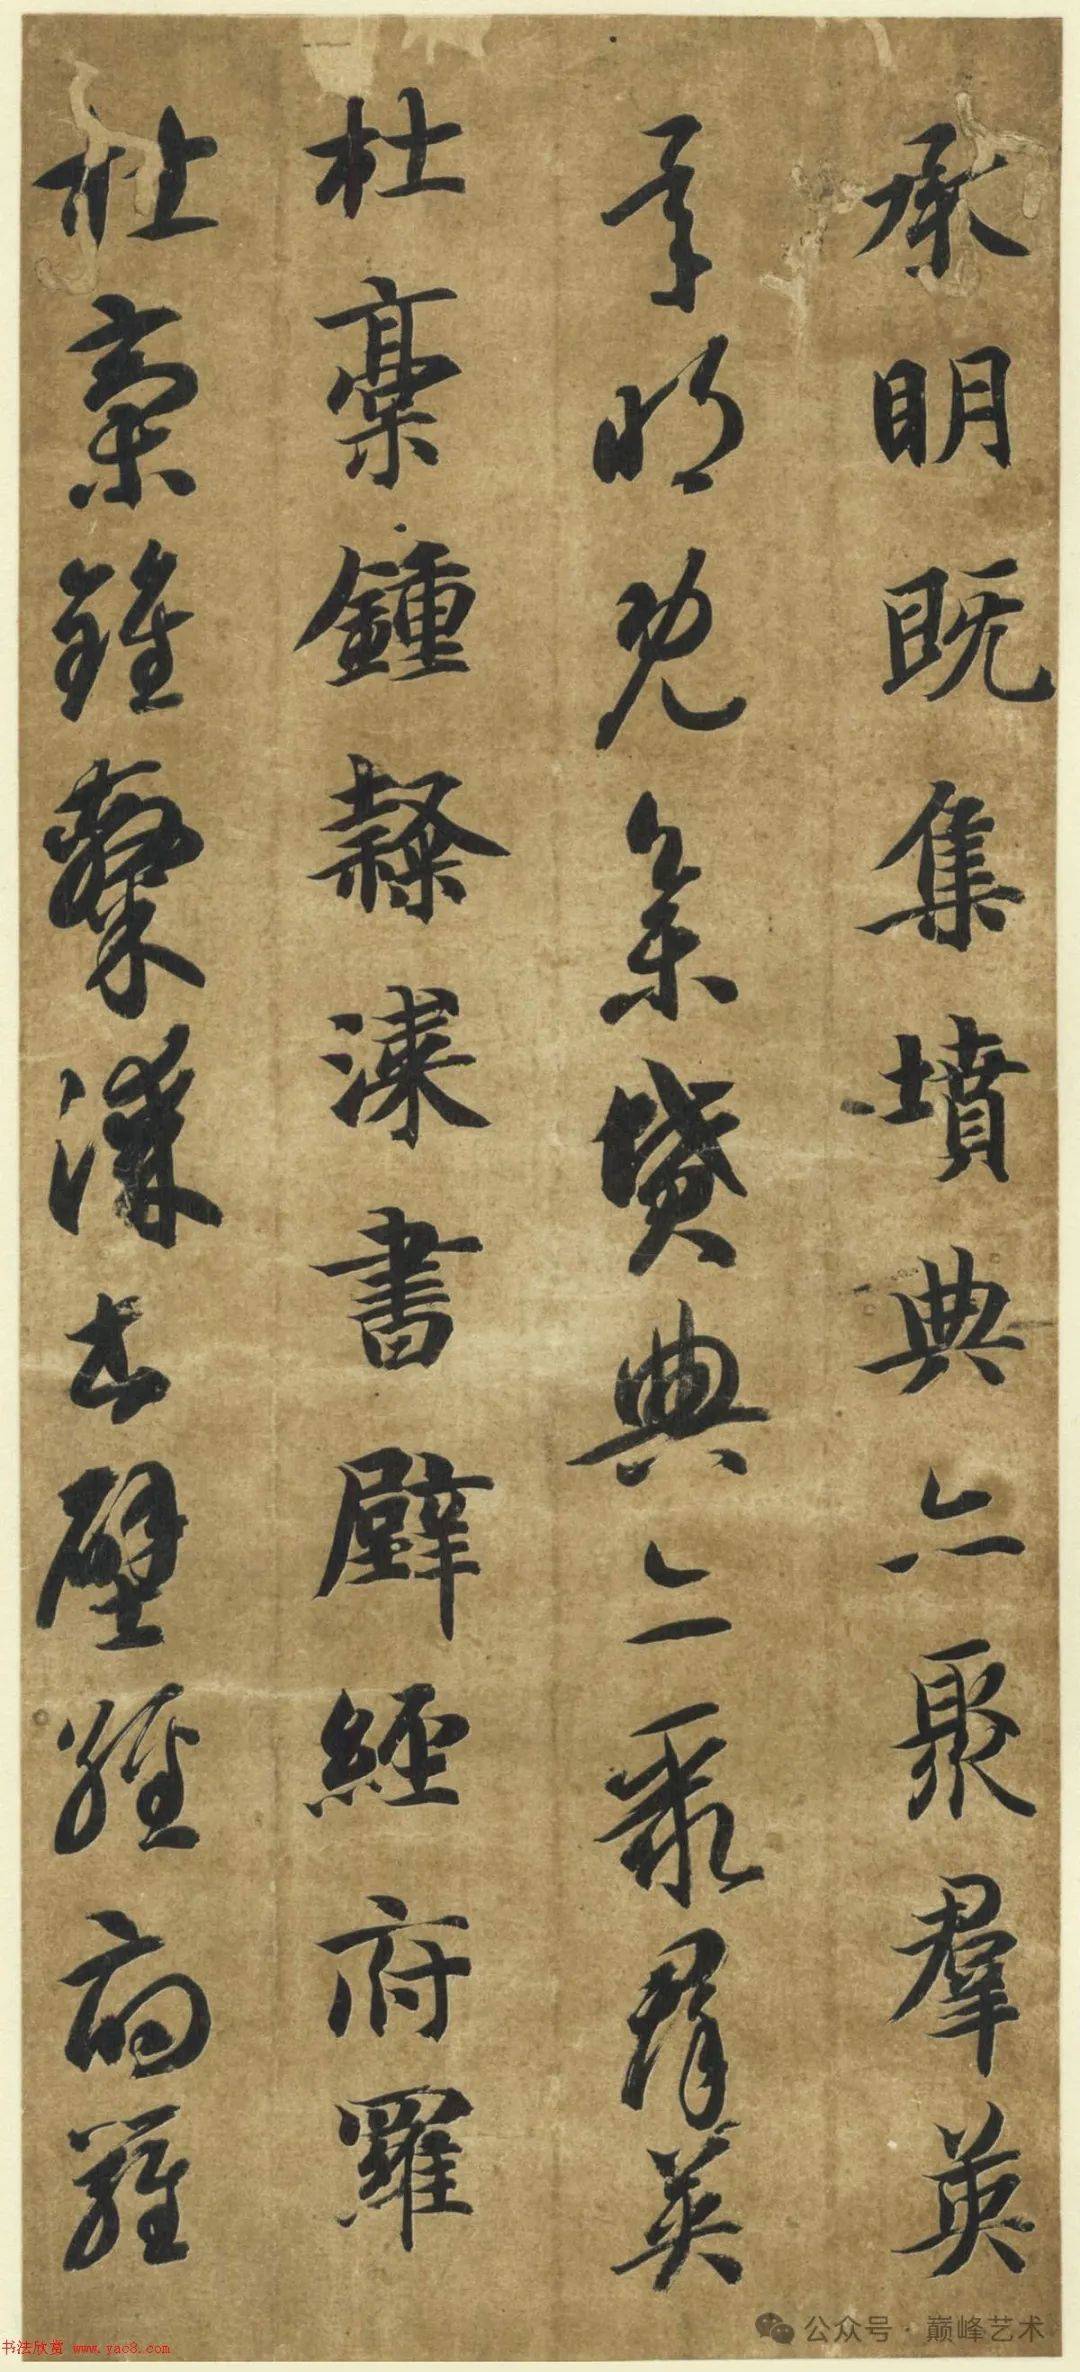 承明既集墳典亦聚羣英
承明既集墳典亦聚群英
杜稾鍾隸漆書壁經府羅
杜稾鍾隸漆書壁經府羅
公众号 · 巅峰艺术
书法欣赏 www.yac8.com